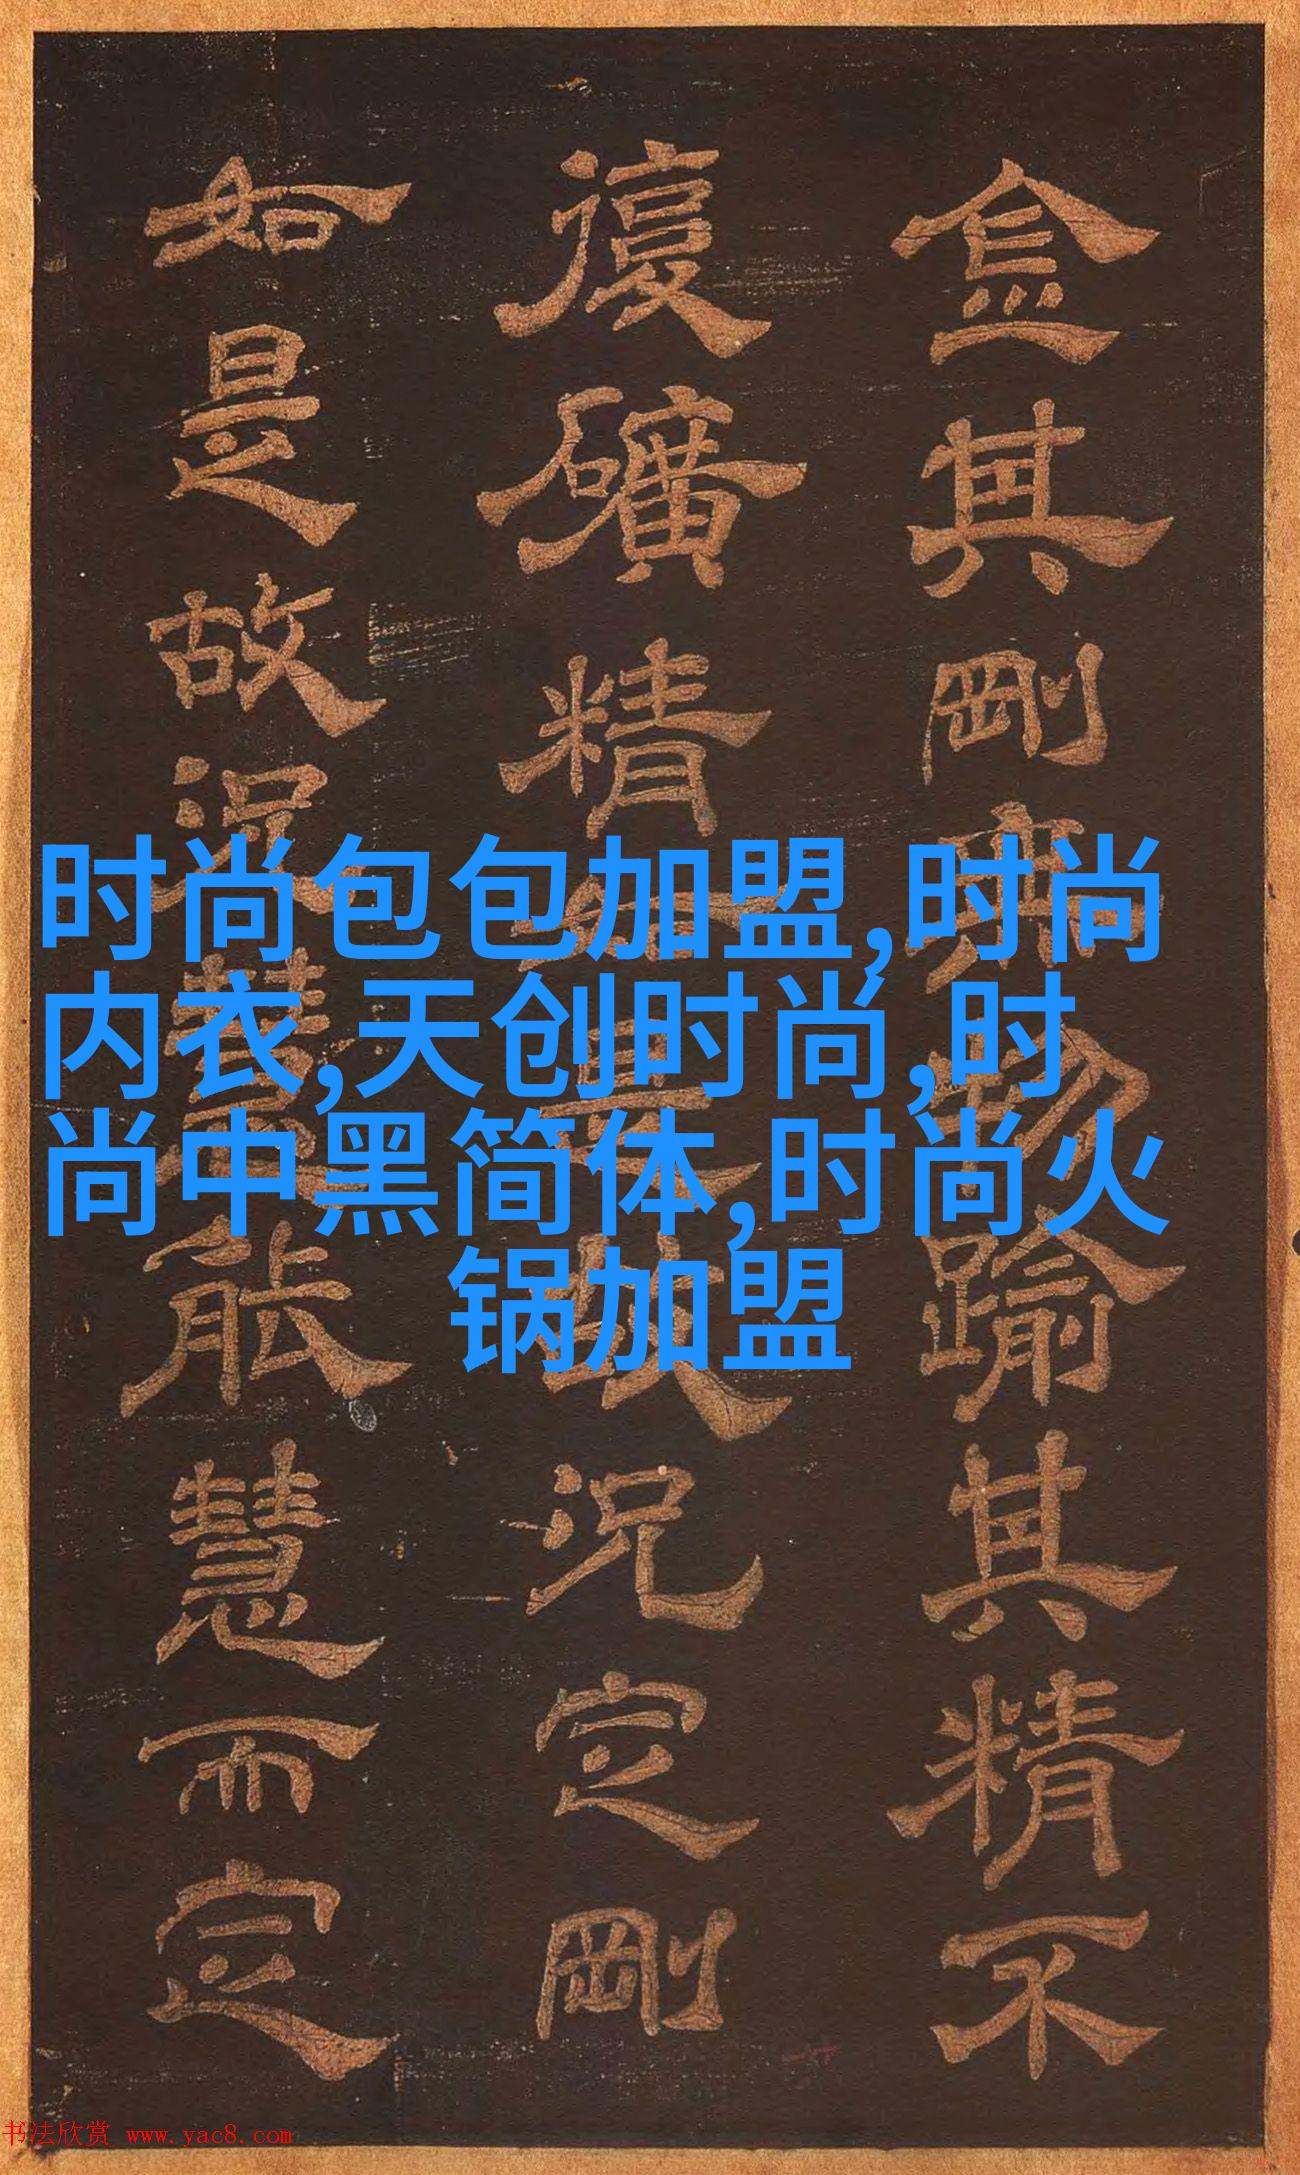 金其剛物踰其精不
復礦精況定剛
如是故能慧而定
时尚包包加盟,时尚
内衣,天创时尚,时
尚中黑简体,时尚火
锅加盟
书法欣赏 www.yac8.com